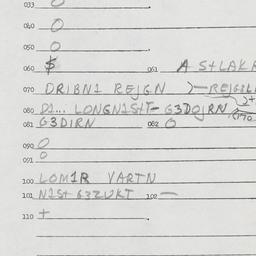 033 O
040 O
050 O
060 $ 061 A StLAKA
070 DRIBNI REIGN
080 DI... LONGNISHT- G3DOJRN
081 G3DIRN 082 O
090 O
091 O
100 LOM1R VARTN
101 NISt G3ZUKT 102 —
110 +